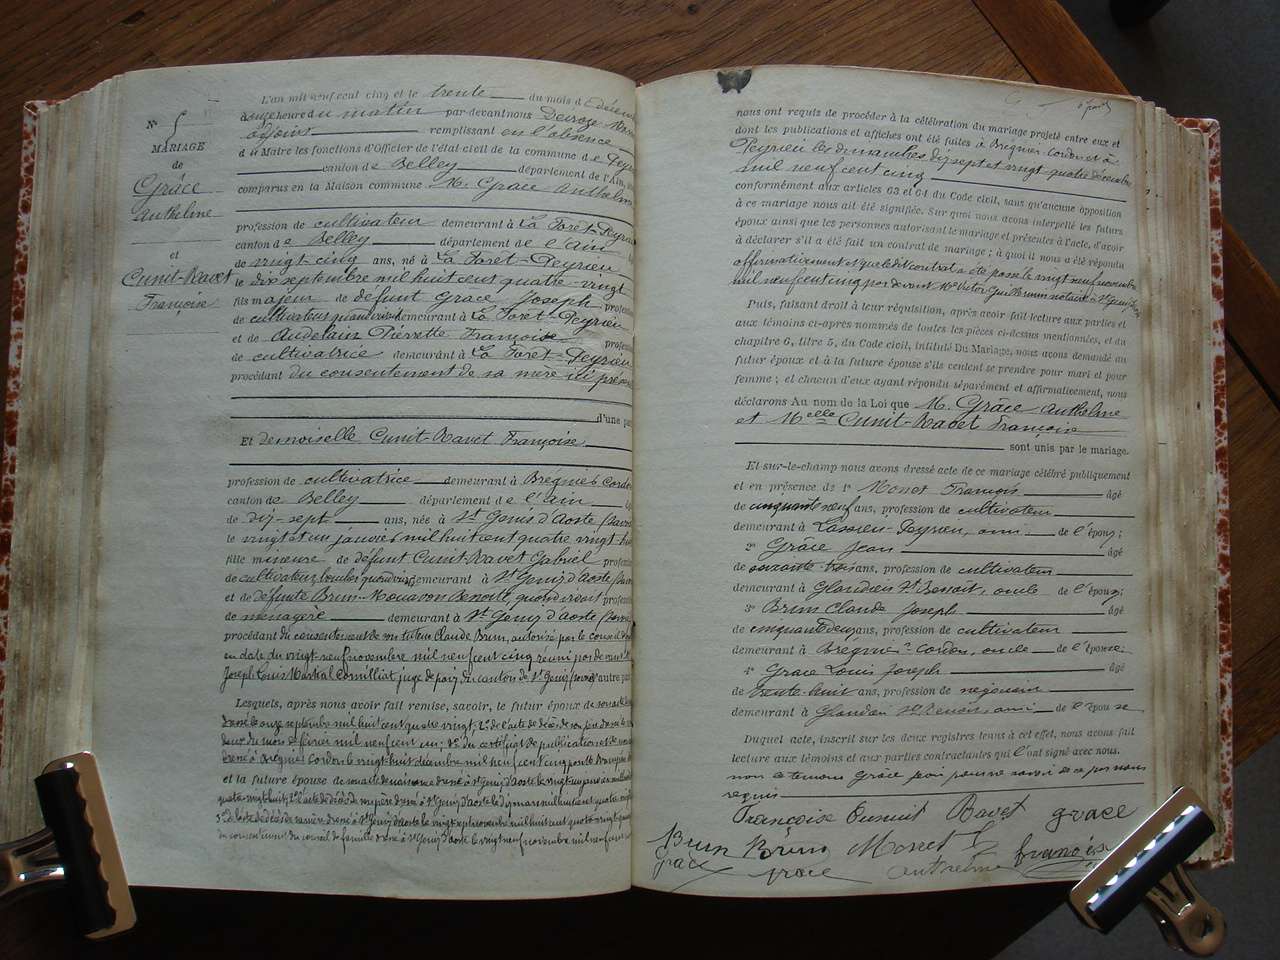 N° 5
MARIAGE
de
Grâce
Anthelme
et
Cunit-Ravet
Françoise
L'an mil neuf cent cinq et le trente du mois de décem
à onze heure du matin par-devant nous
adjoint remplissant en l'absence
du Maire les fonctions d'Officier de l'état civil de la commune de Peyri
canton de Belley département de l'Ain,
comparus en la Maison commune M. Grâce Anthelm
profession de cultivateur demeurant à La Forêt-Peyrieu
canton de Belley département de l'Ain
de vingt cinq ans, né à La Foret-Peyrieu
le dix septembre mil huit cent quatre vingt
fils majeur de défunt Grace Joseph profession
de cultivateur quand vivait demeurant à La Foret-Peyrieu
et de Audelain Pierrette Françoise profession
de cultivatrice demeurant à La Foret-Peyrieu
procédant du consentement de sa mère ici présen
d'une par
Et demoiselle Cunit-Ravet Françoise
profession de cultivatrice demeurant à Brégnier Cordo
canton de Belley département de l'Ain
de dix-sept ans, née à St Genis d'Aoste (Savoi
le vingt et un janvier mil huit cent quatre vingt hu
fille mineure de défunt Cunit-Ravet Gabriel profess
de cultivateur quand vivait demeurant à St Genix d'Aoste (Sav
et de défunte Brun-Mouaron Benoite quand vivait profess
de menagère demeurant à St Genix d'Aoste
procédant du consentement de Claude Brun, autorisé par le conseil de
en date du vingt-neuf novembre mil neuf cent cinq réuni par devant
Joseph Louis Martial Cornilliat juge de paix du canton de St Genix (Savoie) d'autre par
Lesquels, après nous avoir fait remise, savoir, le futur époux de son acte
dressé le onze septembre mil huit cent quatre vingt, 2° de l'acte de décès de son père dressé le
deux du mois de février mil neuf cent un; 3° du certificat de publications et de non
dressé à Brégnier Cordon le vingt-huit décembre mil neuf cent cinq
et la future épouse de son acte de naissance dressé à St Genix d'Aoste le vingt-un janvier mil huit
quatre-vingt huit, 2° l'acte de décès de sa mère dressé à St Genix d'Aoste le dix mars mil huit cent quatre
3° de l'acte de décès de son père dressé à St Genix d'Aoste le vingt-sept novembre mil huit cent quatre-vingt
du consentement du conseil de famille dressé à St Genix d'Aoste le vingt neuf novembre mil neuf cent
nous ont requis de procéder à la célébration du mariage projeté entre eux et
dont les publications et affiches ont été faites à Brégnier Cordon et à
Peyrieu les dimanches dix sept et vingt quatre décembre
mil neuf cent cinq
conformément aux articles 63 et 64 du Code civil, sans qu'aucune opposition
à ce mariage nous ait été signifiée. Sur quoi nous avons interpellé les futurs
époux ainsi que les personnes autorisant le mariage et présentes à l'acte, d'avoir
à déclarer s'il a été fait un contrat de mariage ; à quoi il nous a été répondu
affirmativement et que le dit contrat a été passé le vingt neuf novembre
mil neuf cent cinq par devant Me Victor notaire à St Genix
Puis, faisant droit à leur réquisition, après avoir fait lecture aux parties et
aux témoins ci-après nommés de toutes les pièces ci-dessus mentionnées, et du
chapitre 6, titre 5, du Code civil, intitulé Du Mariage, nous avons demandé au
futur époux et à la future épouse s'ils veulent se prendre pour mari et pour
femme ; et chacun d'eux ayant répondu séparément et affirmativement, nous
déclarons Au nom de la Loi que M. Grâce Anthelme
et Melle Cunit-Ravet Françoise
sont unis par le mariage.
Et sur-le-champ nous avons dressé acte de ce mariage célébré publiquement
et en présence de 1° Monet François âgé
de cinquante neuf ans, profession de cultivateur
demeurant à Peyrieu, ami de l'époux;
2° Grâce Jean âgé
de soixante-trois ans, profession de cultivateur
demeurant à Glandieu St Benoit, oncle de l'époux;
3° Brun Claude Joseph âgé
de cinquante deux ans, profession de cultivateur
demeurant à Brégnier Cordon, oncle de l'épouse;
4° Grace Louis Joseph âgé
de trente-huit ans, profession de négociant
demeurant à Glandieu St Benoit, ami de l'épouse
Duquel acte, inscrit sur les deux registres tenus à cet effet, nous avons fait
lecture aux témoins et aux parties contractantes qui l'ont signé avec nous.
non le témoin Grâce pour ne savoir de ce par nous
requis
Françoise Cunuit Ravet grace
Brun Brun Monet françois
grace grace anthelme